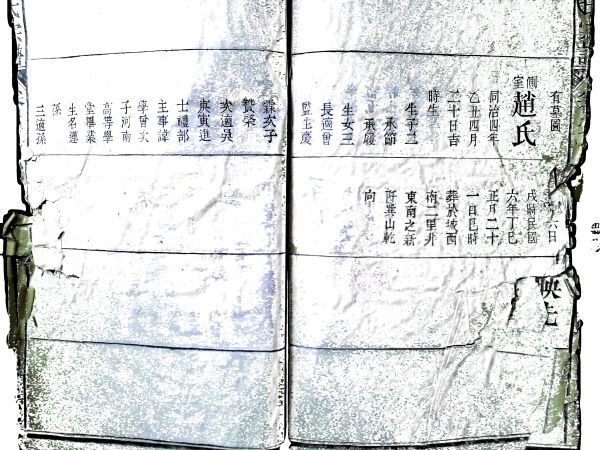 有墓圖
側室趙氏
同治四年
乙丑四月
二十日吉
時生
生子二
承節
承履
生女三
長適曾
監生慶
霖次子
贊榮
次適吳
庚寅進
士禮部
主事諱
學曾次
子河南
高等學
堂畢業
生名遷
孫
三適孫
六日
戌時民國
六年丁巳
正月二十
一日巳時
葬於城西
南二里許
東南之新
阡巽山乾
向
映